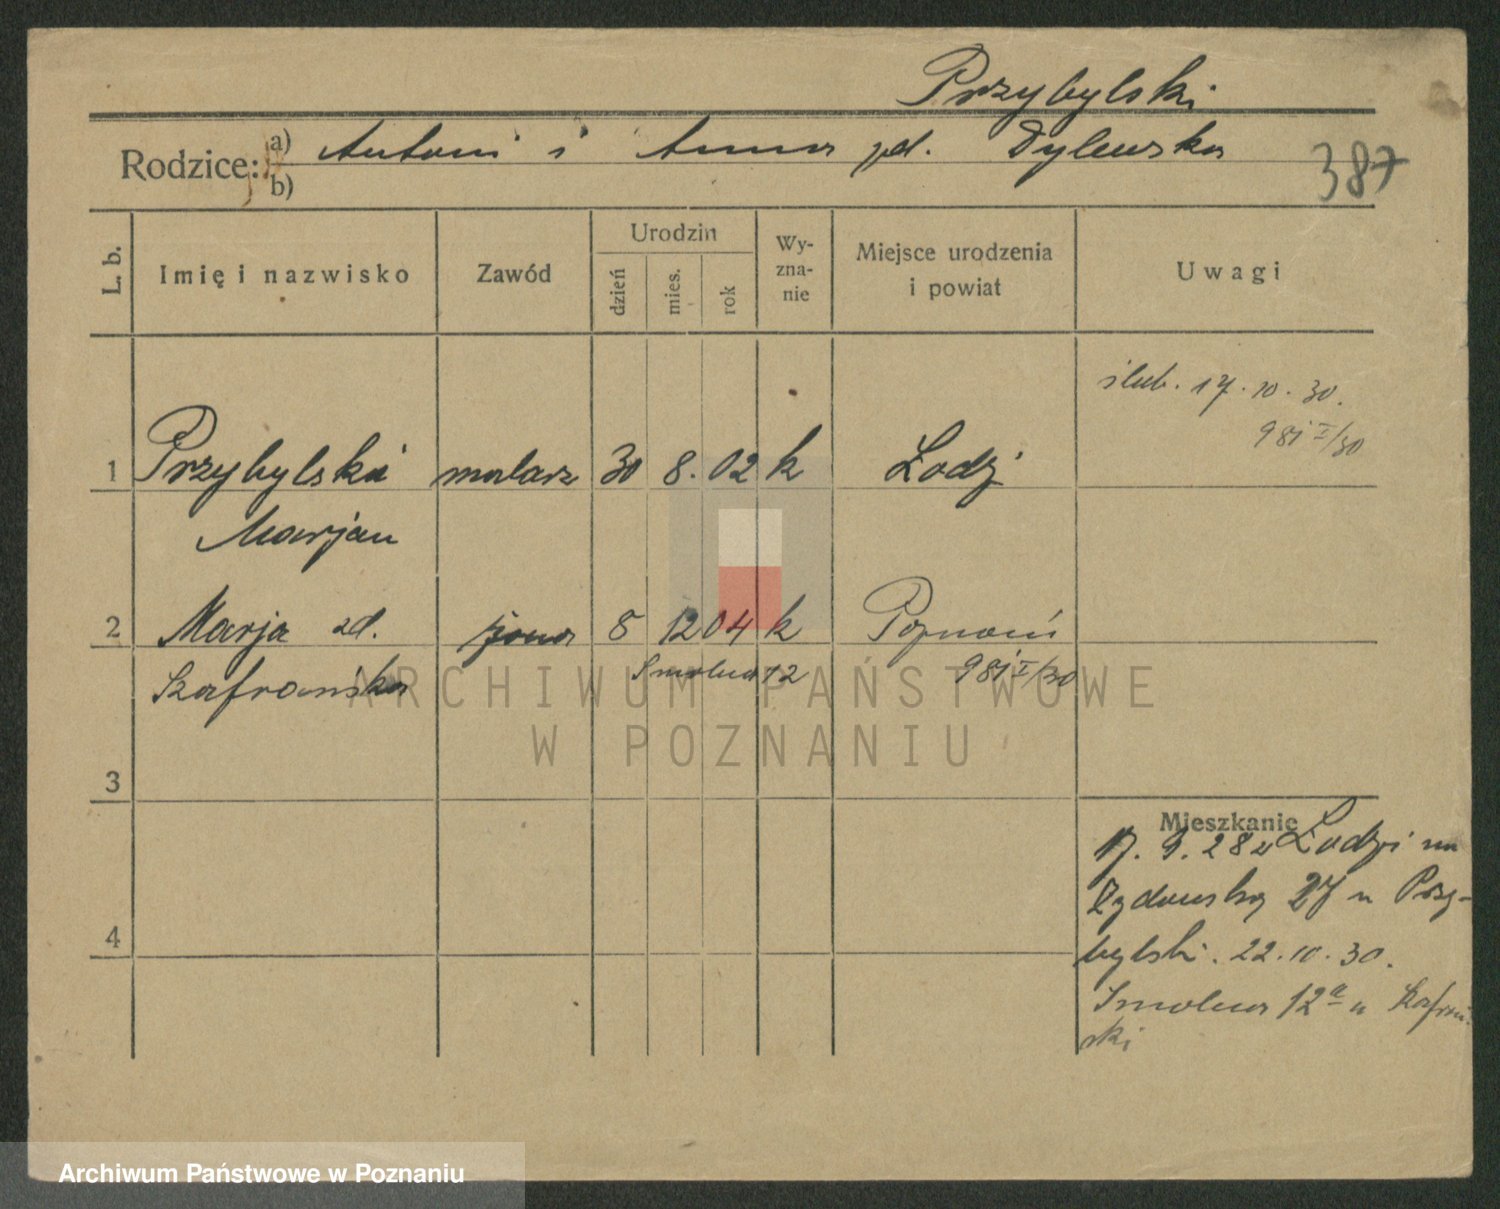 Przybylski
Rodzice: a) Antoni i Anna zd. Dylewska
b)
387
L. b.
Imię i nazwisko
Zawód
Urodzin
dzień
mies.
rok
Wy-
zna-
nie
Miejsce urodzenia
i powiat
Uwagi
ślub. 17.10.30.
981 I/30
1 Przybylski malarz 30 8. 02 k Łodzi
Marjan
2 Marja zd. żona 8 12 04 k Poznań
Szafrańska Smolna 12 981 I/30
3
4
Mieszkanie
17. 9. 28 z Łodzi na
Żydowską 27 u Przy-
bylski. 22.10.30.
Smolna 12a u Szafrań-
ski
ARCHIWUM PAŃSTWOWE
W POZNANIU
Archiwum Państwowe w Poznaniu